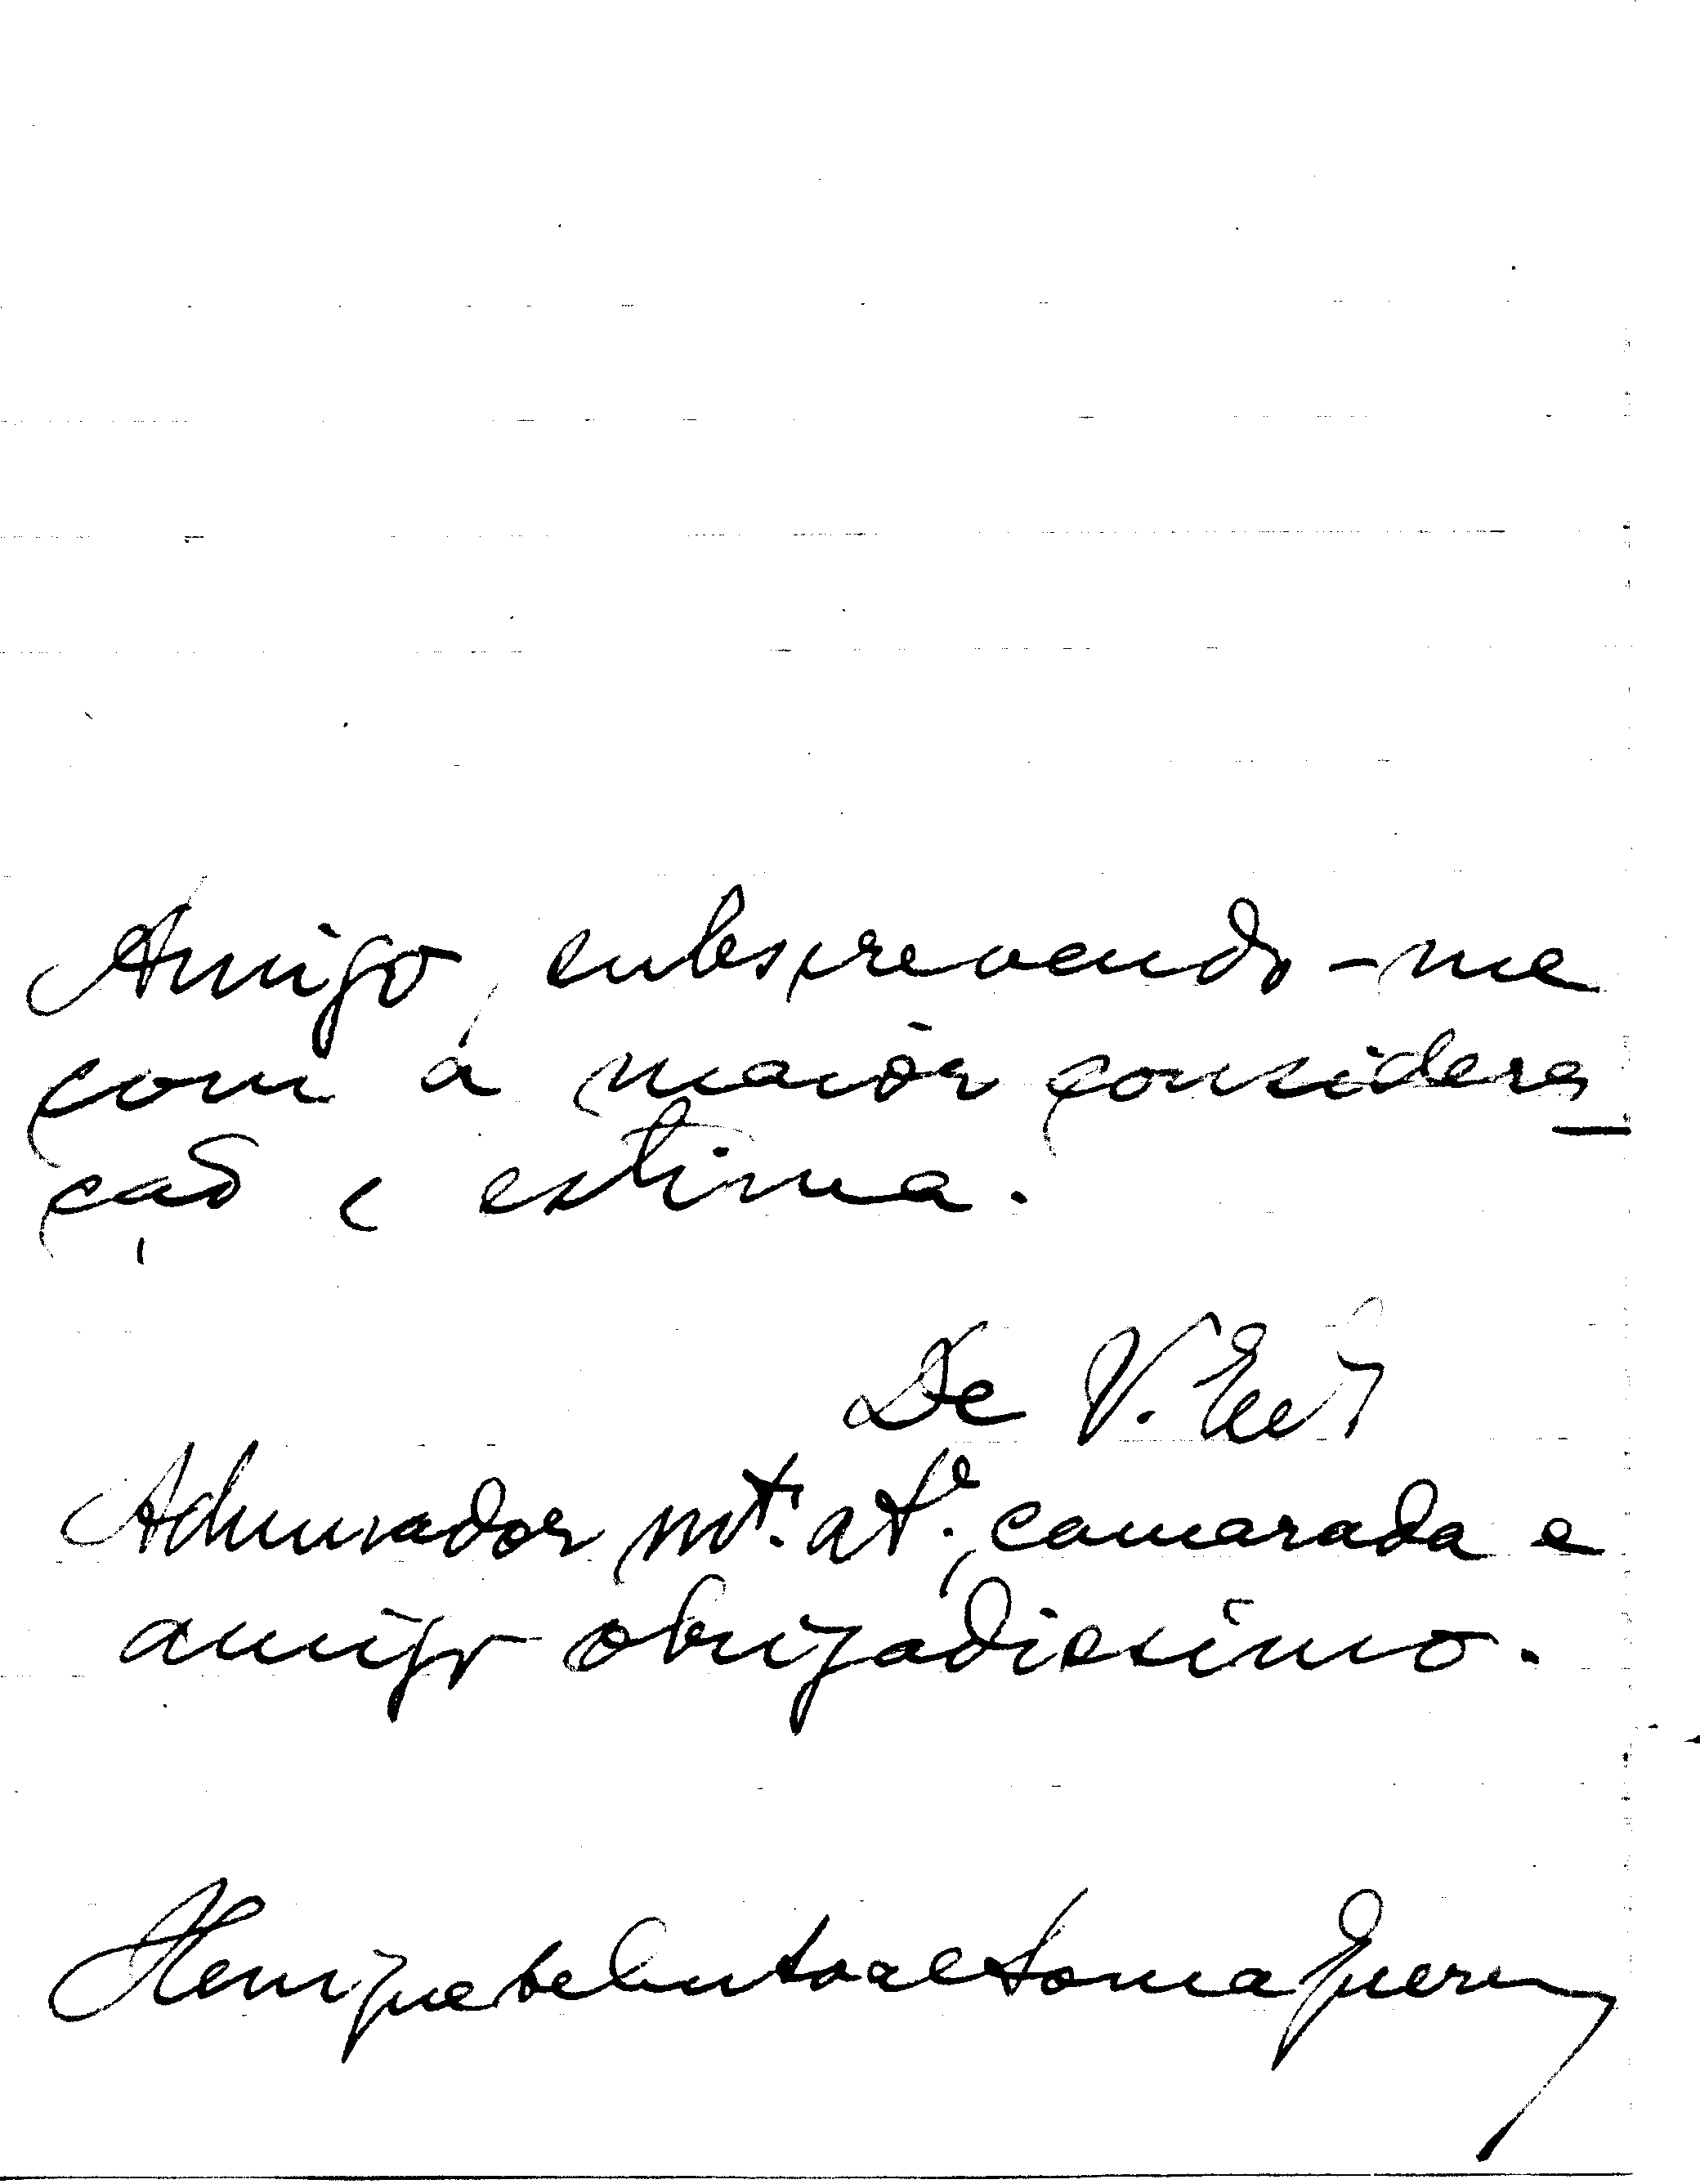 Amigo, subscrevendo-me
com a maiór considera
ção e estima.
De V. Exª
Admirador mt.º at.º, camarada e
amigo obrigadissimo.
Henrique